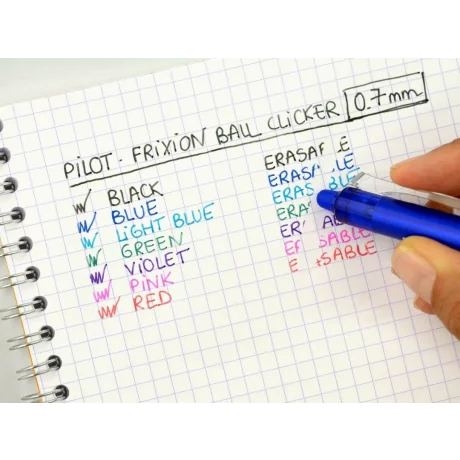 PiLOT . FRiXiON BALL CLiCKER 0.7mm
BLACK
BLUE
LiGHT BLUE
GREEN
ViOLET
PiNK
RED
ERASA E
ERAS LE
ERAS BLE
ERA
ER AB
EF SABLE
E SABLE